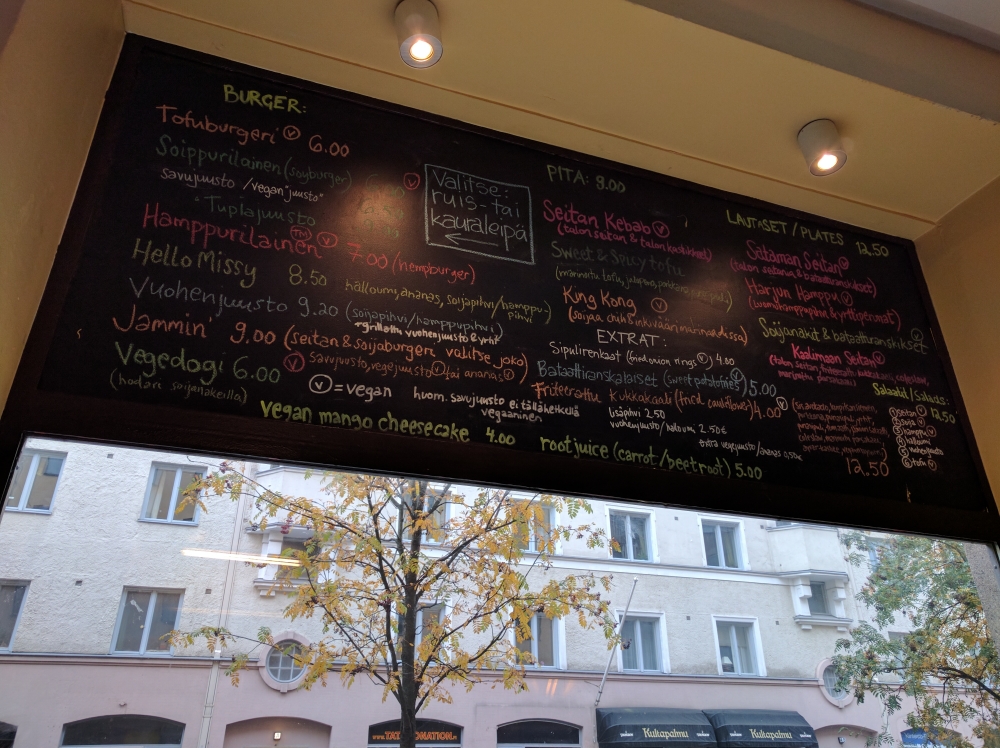 BURGER:
Tofuburgeri V 6.00
Soippurilainen (soyburger)
savujuusto / vegan "juusto" V
"Tuplajuusto
Hamppurilainen TM V 7.00 (hempburger)
Hello Missy 8.50 halloumi, ananas, soijapihvi/hamppu-
pihvi
Vuohenjuusto 9.20 (soijapihvi/hamppupihvi)
+grillattu vuohenjuusto & yrtit
Jammin' 9.00 (seitan & soijaburgeri, valitse joko)
V savujuusto, vegejuusto V tai ananas V
Vegedogi 6.00
(hodari soijanakeilla)
V = vegan huom. savujuusto ei tällä hetkellä
vegaaninen
vegan mango cheesecake 4.00
Valitse:
ruis- tai
kauraleipä
PITA: 9.00
Seitan Kebab V
(talon seitan & talon kastikkeet)
Sweet & Spicy tofu
(marinoitu tofu, jalapeno,
King Kong V
(soijaa chili & inkivääri marinadissa)
EXTRAT:
Sipulirenkaat (fried onion rings V) 4.00
Bataattiranskalaiset (sweet potatofries V) 5.00
Friteerattu kukkakaali (fried cauliflower V) 4.00
lisäpihvi 2.50
vuohenjuusto/halloumi 2.50€
extra vegejuusto/ananas 0,50€
rootjuice (carrot/beetroot) 5.00
LAUTASET / PLATES 12.50
Sataman Seitan V
(talon seitania & bataattiranskikset)
Harjun Hamppu V
(luomuhamppupihvi & yrttiperunat)
Soijanakit & bataattiranskikset V
Kaalimaan Seitan V
(talon seitan, friteerattu kukkakaali,
Salaatit / Salads:
12.50
seitan V
soija V
hamppu V
halloumi
vuohenjuusto
tofu V
12.50
www.TATUONATION.fi
Kultapalmu
Kultapalmu